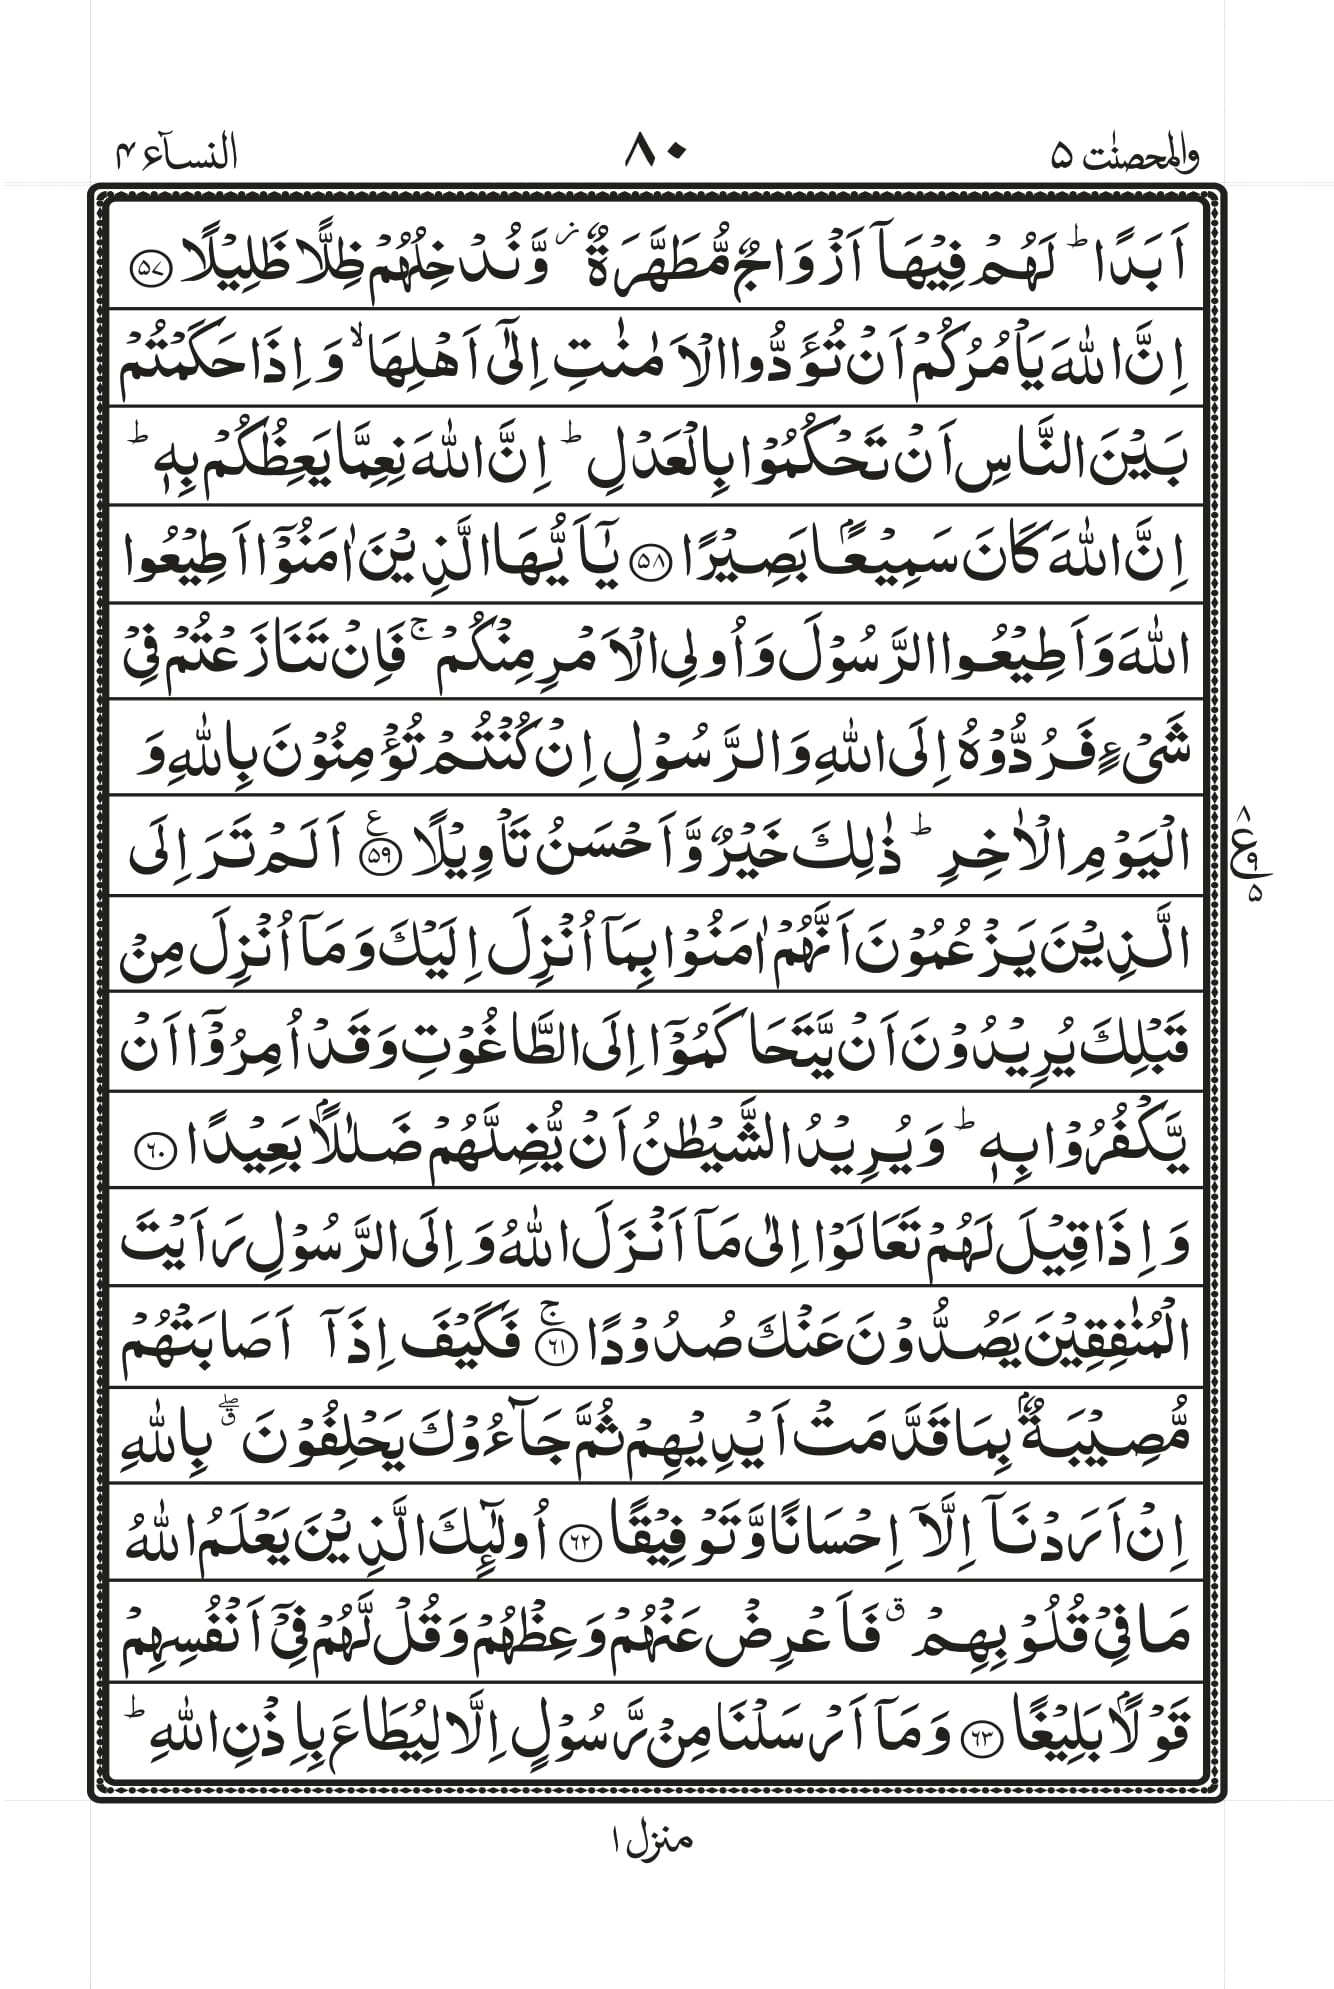 والمحصنٰت ۵ ۸۰ النسآء ۴
اَبَدًا ؕ لَهُمۡ فِيۡهَاۤ اَزۡوَاجٌ مُّطَهَّرَةٌ ز وَّنُدۡخِلُهُمۡ ظِلًّا ظَلِيۡلًا ﴿۵۷﴾
اِنَّ اللّٰهَ يَاۡمُرُكُمۡ اَنۡ تُؤَدُّوا الۡاَمٰنٰتِ اِلٰٓى اَهۡلِهَا ۙ وَاِذَا حَكَمۡتُمۡ
بَيۡنَ النَّاسِ اَنۡ تَحۡكُمُوۡا بِالۡعَدۡلِ ؕ اِنَّ اللّٰهَ نِعِمَّا يَعِظُكُمۡ بِهٖ ؕ
اِنَّ اللّٰهَ كَانَ سَمِيۡعًۢا بَصِيۡرًا ﴿۵۸﴾ يٰۤاَيُّهَا الَّذِيۡنَ اٰمَنُوۡۤا اَطِيۡعُوا
اللّٰهَ وَاَطِيۡعُوا الرَّسُوۡلَ وَاُولِى الۡاَمۡرِ مِنۡكُمۡ ۚ فَاِنۡ تَنَازَعۡتُمۡ فِىۡ
شَىۡءٍ فَرُدُّوۡهُ اِلَى اللّٰهِ وَالرَّسُوۡلِ اِنۡ كُنۡتُمۡ تُؤۡمِنُوۡنَ بِاللّٰهِ وَ
الۡيَوۡمِ الۡاٰخِرِ ؕ ذٰلِكَ خَيۡرٌ وَّاَحۡسَنُ تَاۡوِيۡلًا ﴿۵۹﴾ ع اَلَمۡ تَرَ اِلَى
۸ ع ۹ ۵
الَّذِيۡنَ يَزۡعُمُوۡنَ اَنَّهُمۡ اٰمَنُوۡا بِمَاۤ اُنۡزِلَ اِلَيۡكَ وَمَاۤ اُنۡزِلَ مِنۡ
قَبۡلِكَ يُرِيۡدُوۡنَ اَنۡ يَّتَحَاكَمُوۡۤا اِلَى الطَّاغُوۡتِ وَقَدۡ اُمِرُوۡۤا اَنۡ
يَّكۡفُرُوۡا بِهٖ ؕ وَيُرِيۡدُ الشَّيۡطٰنُ اَنۡ يُّضِلَّهُمۡ ضَلٰلًاۢ بَعِيۡدًا ﴿۶۰﴾
وَاِذَا قِيۡلَ لَهُمۡ تَعَالَوۡا اِلٰى مَاۤ اَنۡزَلَ اللّٰهُ وَاِلَى الرَّسُوۡلِ رَاَيۡتَ
الۡمُنٰفِقِيۡنَ يَصُدُّوۡنَ عَنۡكَ صُدُوۡدًا ﴿۶۱﴾ ۚ فَكَيۡفَ اِذَاۤ اَصَابَتۡهُمۡ
مُّصِيۡبَةٌۢ بِمَا قَدَّمَتۡ اَيۡدِيۡهِمۡ ثُمَّ جَآءُوۡكَ يَحۡلِفُوۡنَ ۖق بِاللّٰهِ
اِنۡ اَرَدۡنَاۤ اِلَّاۤ اِحۡسَانًا وَّتَوۡفِيۡقًا ﴿۶۲﴾ اُولٰٓئِكَ الَّذِيۡنَ يَعۡلَمُ اللّٰهُ
مَا فِىۡ قُلُوۡبِهِمۡ ق فَاَعۡرِضۡ عَنۡهُمۡ وَعِظۡهُمۡ وَقُلۡ لَّهُمۡ فِىۡۤ اَنۡفُسِهِمۡ
قَوۡلًاۢ بَلِيۡغًا ﴿۶۳﴾ وَمَاۤ اَرۡسَلۡنَا مِنۡ رَّسُوۡلٍ اِلَّا لِيُطَاعَ بِاِذۡنِ اللّٰهِ ؕ
منزل ۱